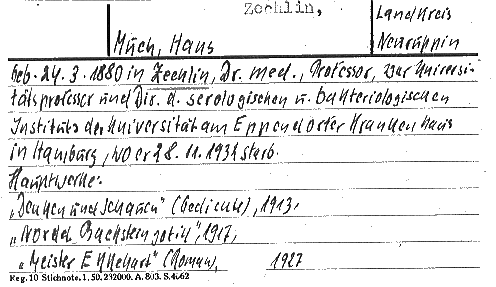 Zechlin,
Landkreis
Müch, Hans
Neuruppin
geb. 24.3.1880 in Zechlin, Dr. med., Professor, war Universi-
tätsprofessor und Dir. d. serologischen u. bakteriologischen
Instituts der Universität am Eppendorfer Krankenhaus
in Hamburg, wo er 28.11.1932 starb.
Hauptwerke:
„Denken und Schauen" (Gedichte), 1913,
„Nordd. Backsteingotik", 1917,
„Meister Ekkehart" (Roman), 1927
Reg. 10 Stichnote. 1. 50. 232000. A. 803. S. 4662